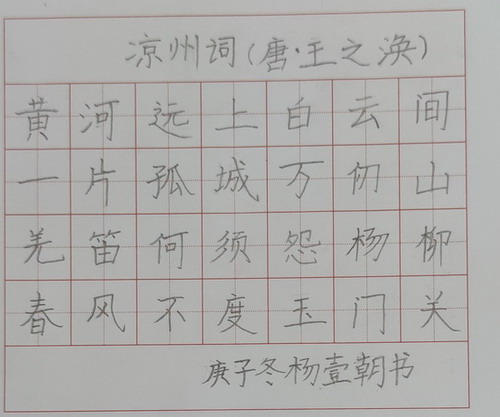 凉州词(唐·王之涣)
黄河远上白云间
一片孤城万仞山
羌笛何须怨杨柳
春风不度玉门关
庚子冬杨壹朝书